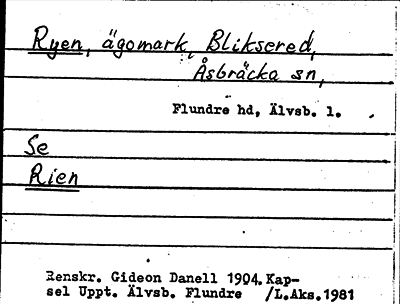 Ryen, ägomark, Bliksered,
Åsbräcka sn,
Flundre hd, Älvsb. l.
Se
Rien
Renskr. Gideon Danell 1904. Kap-
sel Uppt. Älvsb. Flundre /L.Aks.1981